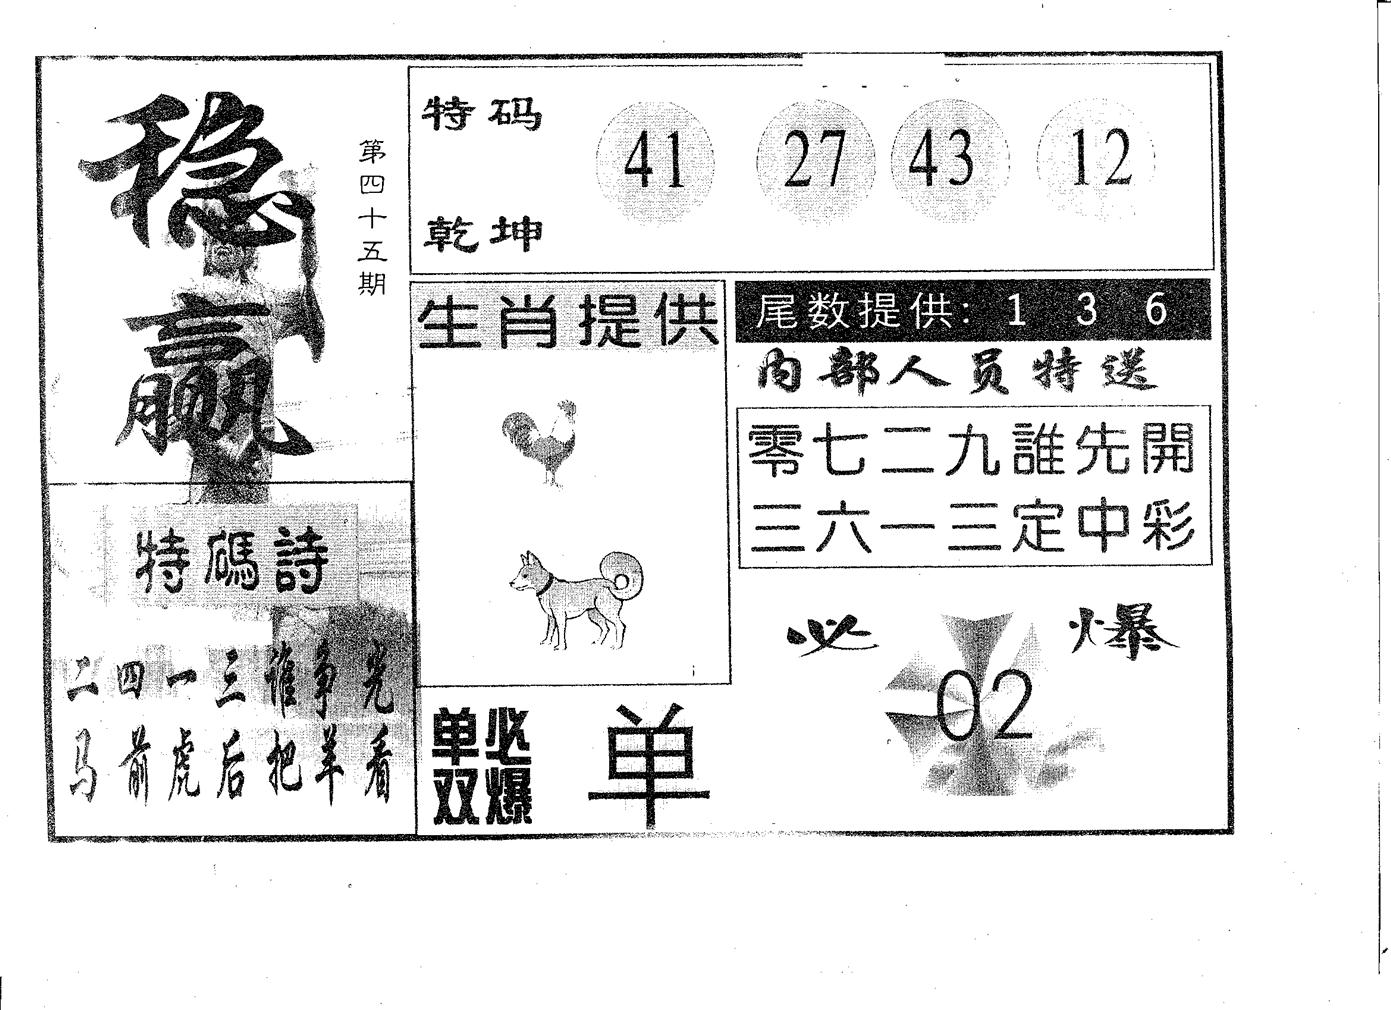 稳赢
第四十五期
特码
乾坤
41 27 43 12
生肖提供
尾数提供: 1 3 6
内部人员特送
零七二九誰先開
三六一三定中彩
特碼詩
二四一三谁争光
马前虎后把羊看
单双
必爆
单
必爆
02